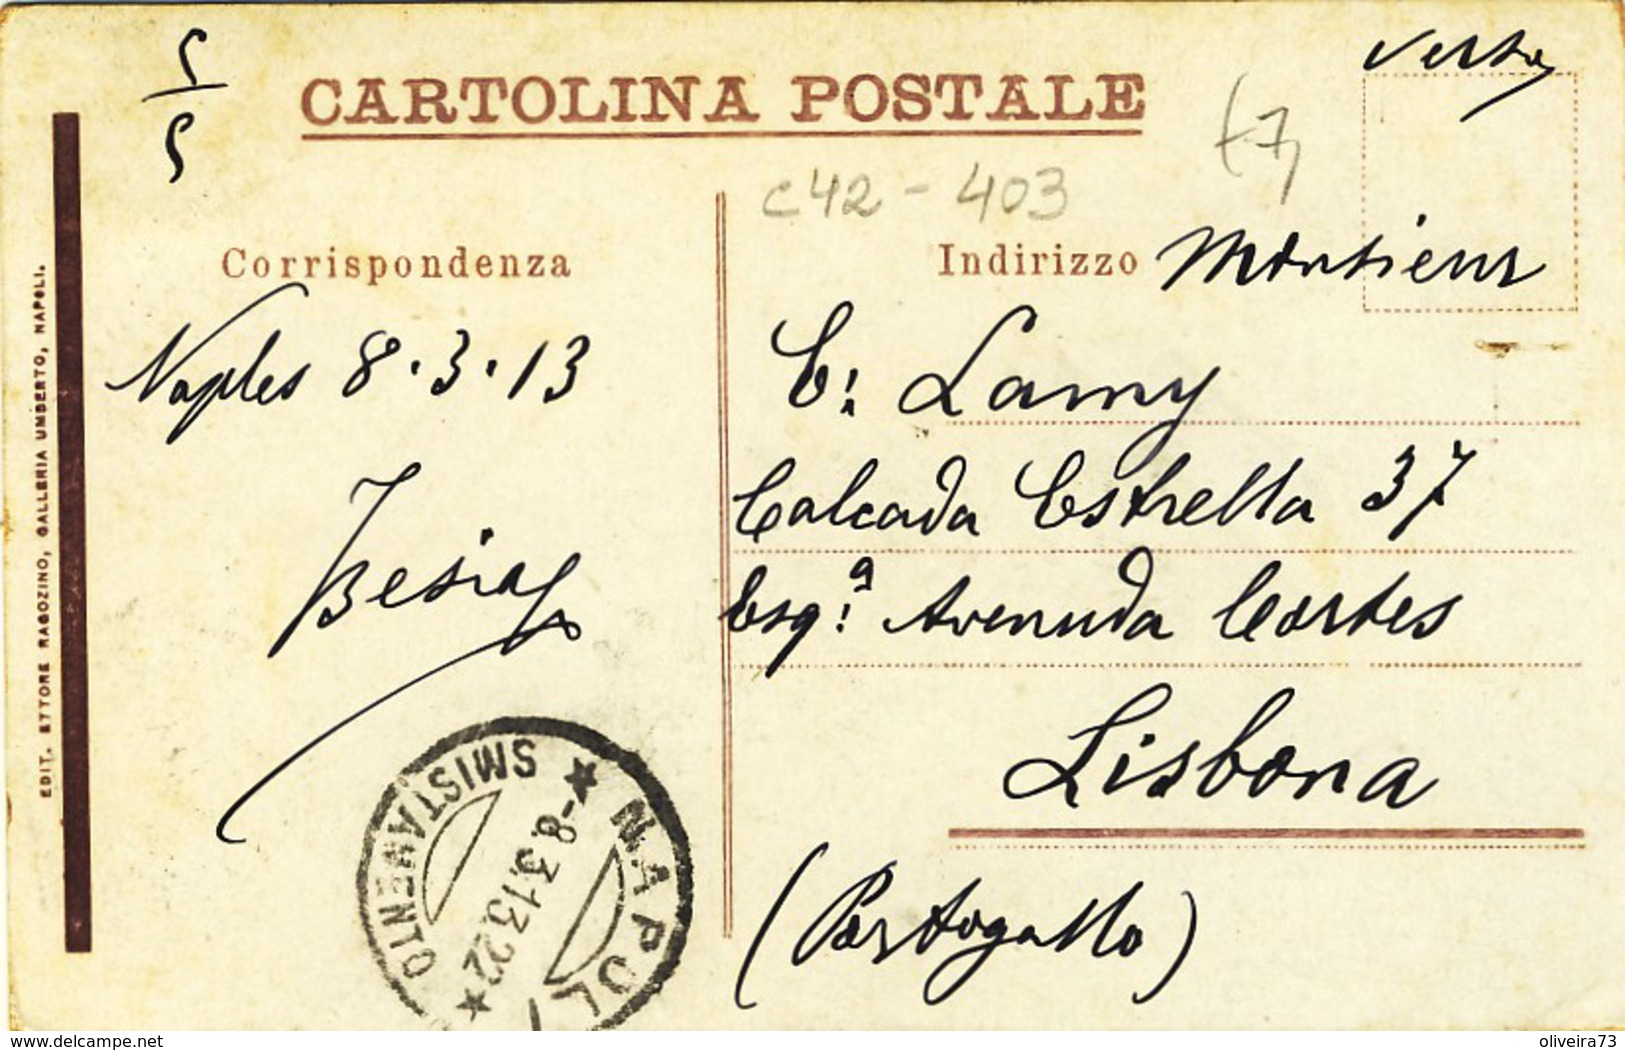 5/5
CARTOLINA POSTALE
verso
(7)
c42 - 403
Corrispondenza
Indirizzo
Monsieur
Naples 8.3.13
E. Lamy
Calcada Estrella 37
Esq.ª Avenuda Cortes
Lisbona
(Portogallo)
EDIT. ETTORE RAGOZINO, GALLERIA UMBERTO, NAPOLI.
NAPOLI
SMISTAMENTO
-8.3.13.22
www.delcampe.net
oliveira73